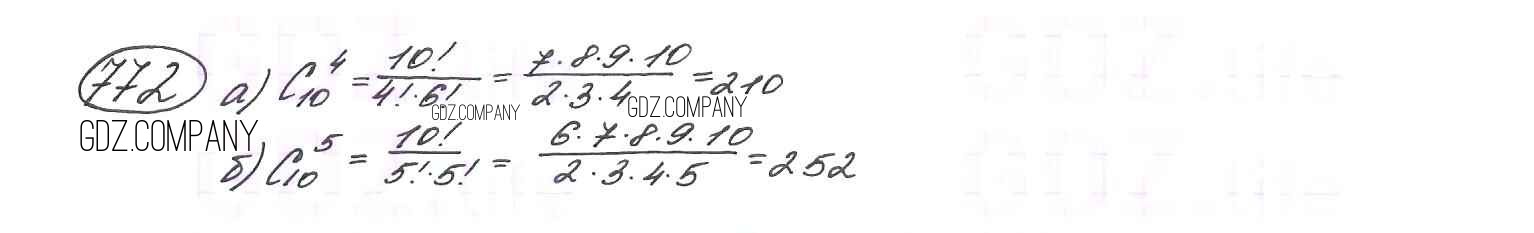 772 а) C₁₀⁴ = 10!/(4!·6!) = (7·8·9·10)/(2·3·4) = 210
GDZ.COMPANY GDZ.COMPANY
GDZ.COMPANY
б) C₁₀⁵ = 10!/(5!·5!) = (6·7·8·9·10)/(2·3·4·5) = 252